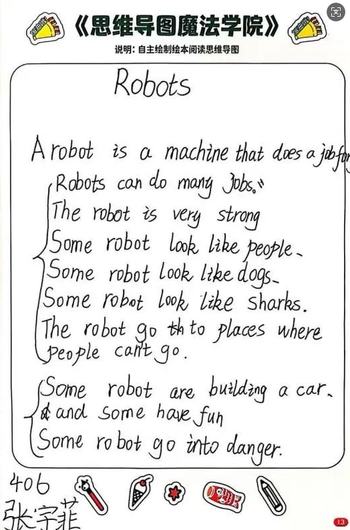 《思维导图魔法学院》
说明：自主绘制绘本阅读思维导图
Robots
A robot is a machine that does a job for
Robots can do many Jobs.
The robot is very strong
Some robot look like people.
Some robot look like dogs.
Some robot look like sharks.
The robot go to places where
people can't go.
Some robot are building a car.
and some have fun
Some robot go into danger.
406
张宇菲
13